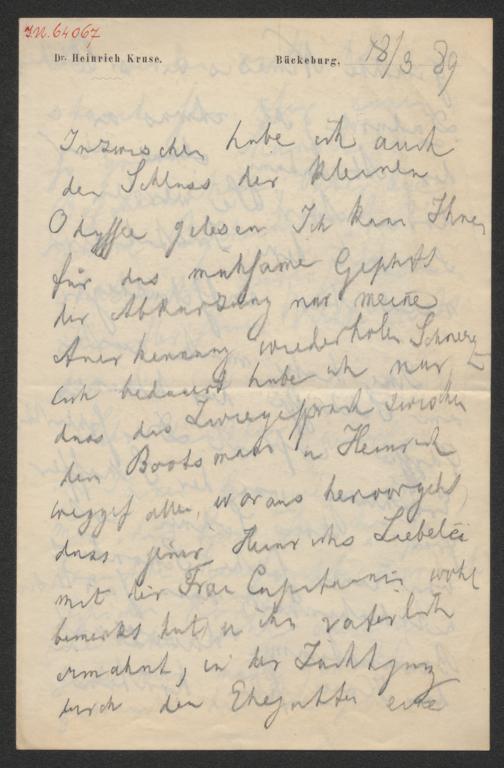 I.N. 64067
Dr. Heinrich Kruse.
Bückeburg, 18/3 89
Inzwischen habe ich auch
den Schluss der kleinen
Odyssee gelesen Ich kann Ihnen
für das mühsame Geschäft
der Abkürzung nur meine
Anerkennung wiederholen Schmerz-
lich bedauert habe ich nur,
dass das Zwiegespräch zwischen
dem Bootsmann u Heinrich
weggefallen, woraus hervorgeht,
dass jener Heinrichs Liebelei
mit der Frau Capitanin wohl
bemerkt hat, u ihn väterlich
ermahnt, in der Züchtigung
durch den Ehegatten eine